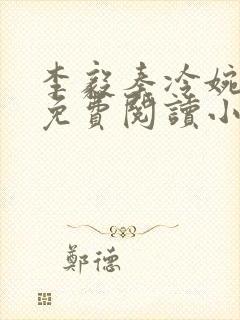 李毅秦冷婉
免費閱讀小
鄭德